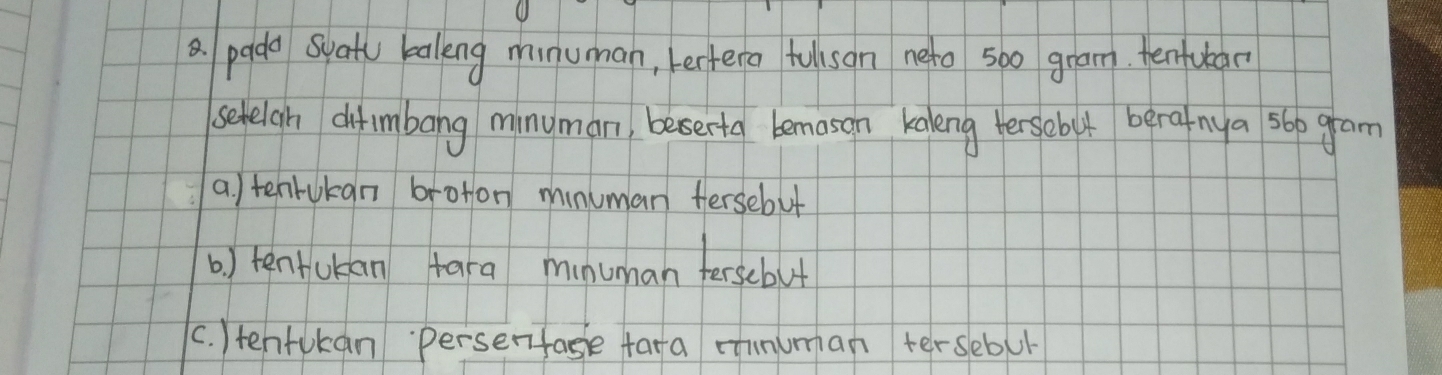 2. pada suatu kaleng minuman, tertera tulisan neto 500 gram. tentukan
setelah ditimbang minuman, beserta kemasan kaleng tersebut beratnya 560 gram
a.) tentukan broton minuman tersebut
b.) tentukan tara minuman tersebut
c.) tentukan persentase tara minuman tersebut